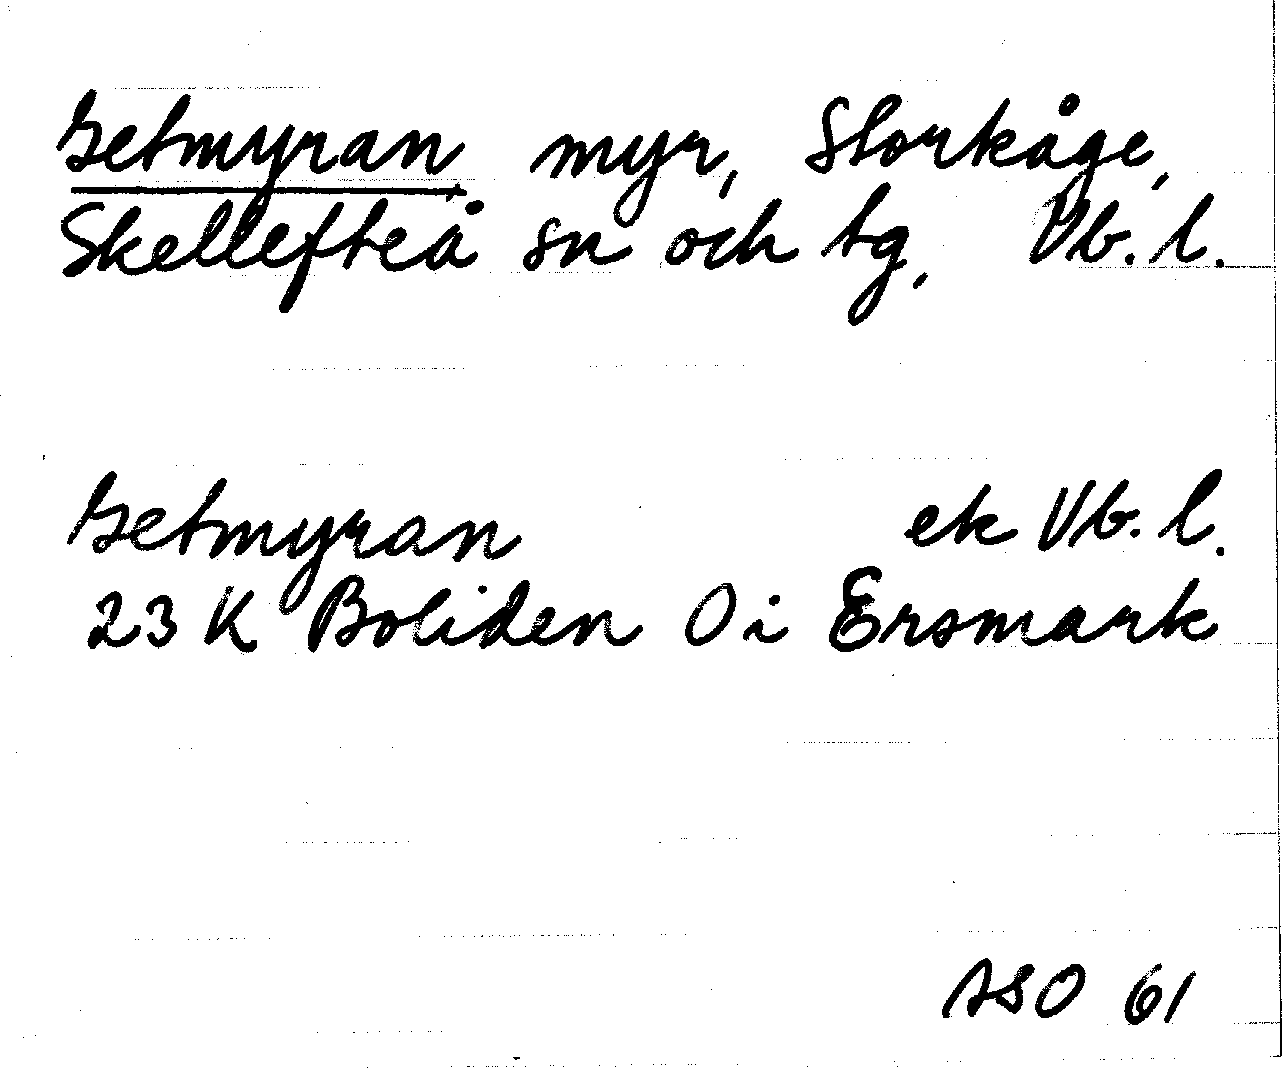 Getmyran, myr, Storkåge,
Skellefteå sn och tg, Vb. l.
Getmyran ek Vb. l.
23 K Boliden Oi Ersmark
ASO 61